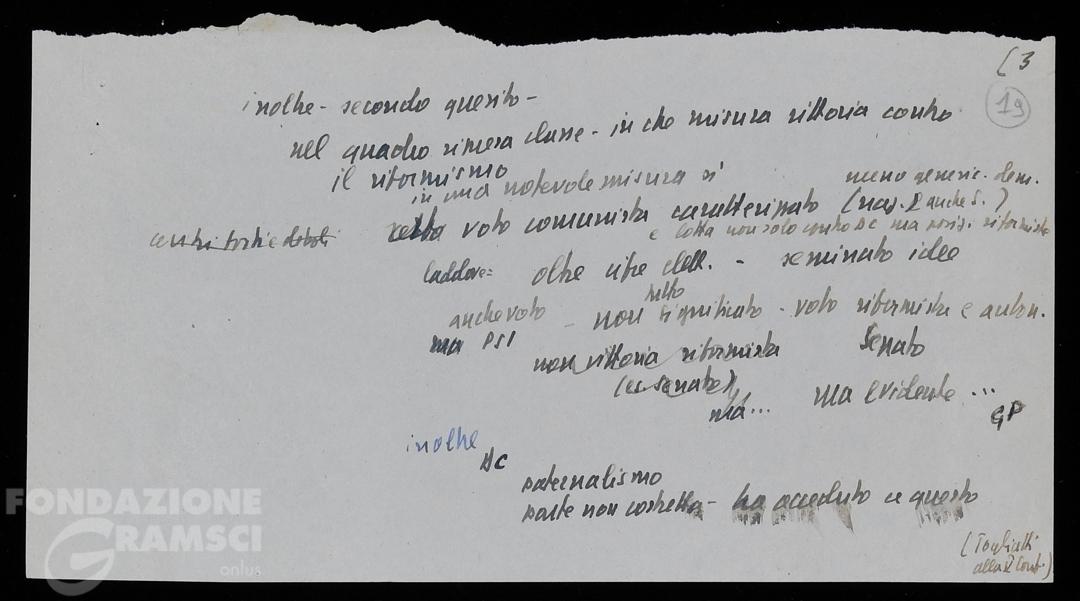 ( 3
19
inoltre - secondo quesito -
nel quadro ripresa classe - in che misura vittoria contro
il riformismo
in una notevole misura sì
meno generic. dem.
centri forti e deboli
netto voto comunista caratterizzato (naz. e anche S.)
e lotta non solo contro DC ma posiz. riformiste
laddove = oltre cifre elett. - seminato idee
anche voto - non netto significato - voto riformista e auton.
ma PSI
non vittoria riformista Senato
(es. senato)
ma... ma evidente ...
GP
inoltre
DC
paternalismo
parte non costretta - ha acceduto a questo
(Togliatti
alla Cont.)
FONDAZIONE
GRAMSCI
onlus